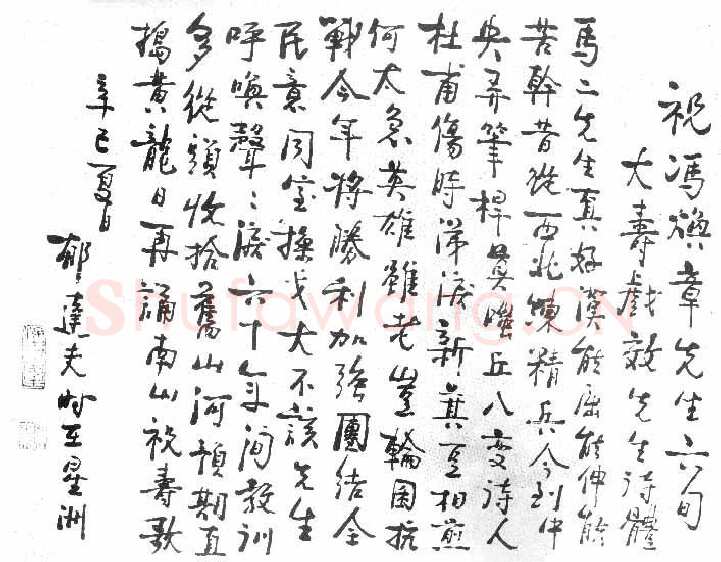 祝馮煥章先生六旬
大壽戲效先生詩體
馬二先生真好漢能屈能伸能
苦幹昔從西北煉精兵今到中
央弄筆桿莫嗤丘八變詩人
杜甫傷時涕淚新萁豆相煎
何太急英雄雖老豈輪囷抗
戰今年將勝利加強團結全
民意同室操戈大不該先生
呼喚聲〻淚六十年間教訓
多從頭收拾舊山河預期直
搗黃龍日再誦南山祝壽歌
辛巳夏日
郁達夫時在星洲
Shufawang.CN